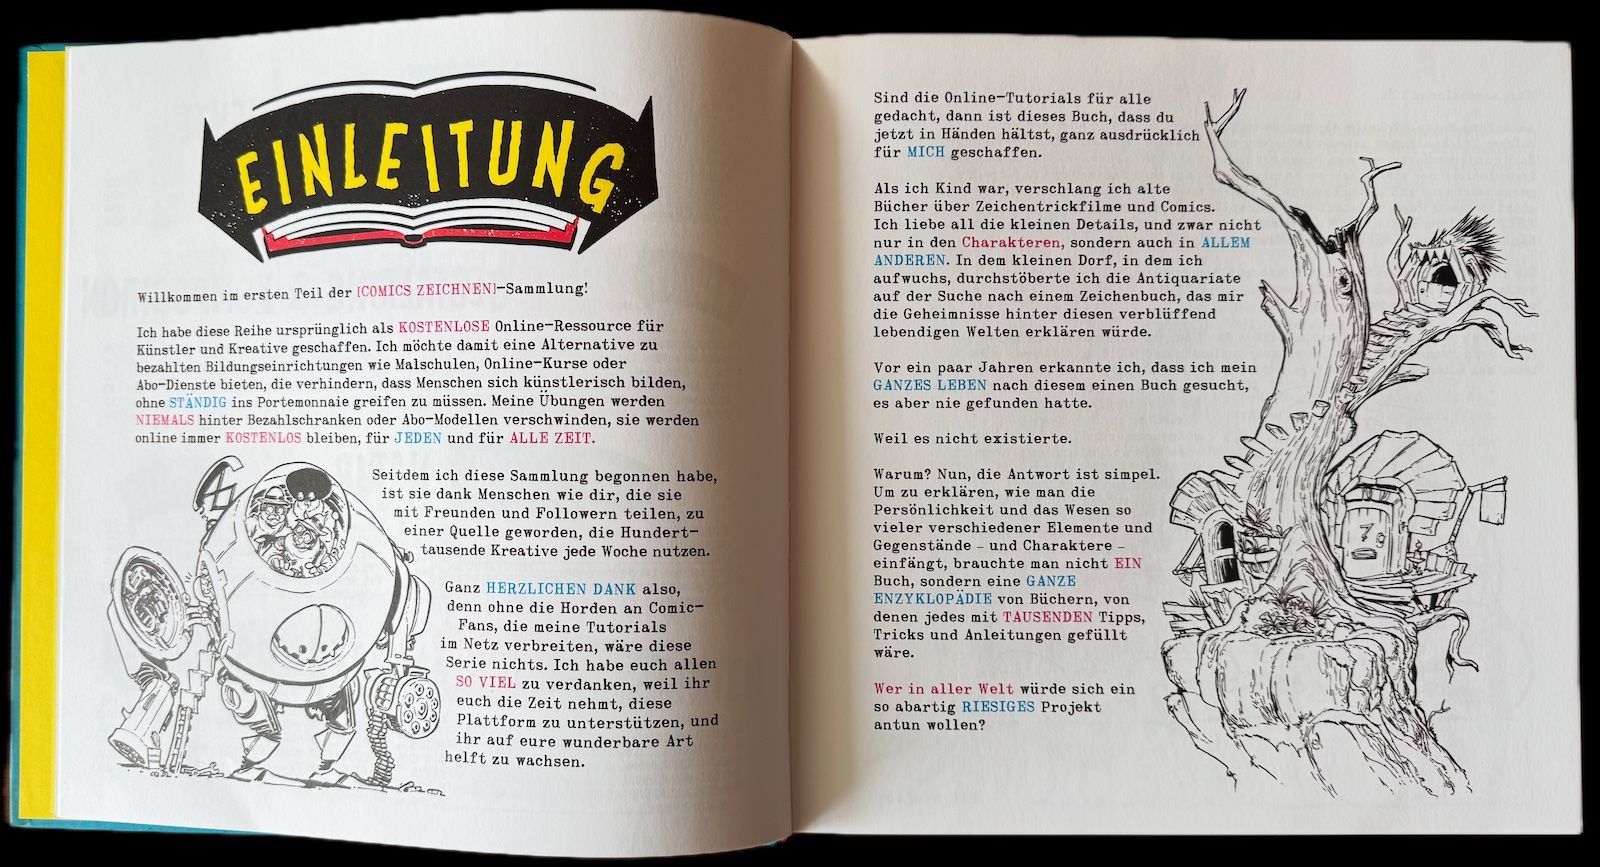 EINLEITUNG
Willkommen im ersten Teil der [COMICS ZEICHNEN]-Sammlung!
Ich habe diese Reihe ursprünglich als KOSTENLOSE Online-Ressource für
Künstler und Kreative geschaffen. Ich möchte damit eine Alternative zu
bezahlten Bildungseinrichtungen wie Malschulen, Online-Kurse oder
Abo-Dienste bieten, die verhindern, dass Menschen sich künstlerisch bilden,
ohne STÄNDIG ins Portemonnaie greifen zu müssen. Meine Übungen werden
NIEMALS hinter Bezahlschranken oder Abo-Modellen verschwinden, sie werden
online immer KOSTENLOS bleiben, für JEDEN und für ALLE ZEIT.
Seitdem ich diese Sammlung begonnen habe,
ist sie dank Menschen wie dir, die sie
mit Freunden und Followern teilen, zu
einer Quelle geworden, die Hundert-
tausende Kreative jede Woche nutzen.
Ganz HERZLICHEN DANK also,
denn ohne die Horden an Comic-
Fans, die meine Tutorials
im Netz verbreiten, wäre diese
Serie nichts. Ich habe euch allen
SO VIEL zu verdanken, weil ihr
euch die Zeit nehmt, diese
Plattform zu unterstützen, und
ihr auf eure wunderbare Art
helft zu wachsen.
Sind die Online-Tutorials für alle
gedacht, dann ist dieses Buch, dass du
jetzt in Händen hältst, ganz ausdrücklich
für MICH geschaffen.
Als ich Kind war, verschlang ich alte
Bücher über Zeichentrickfilme und Comics.
Ich liebe all die kleinen Details, und zwar nicht
nur in den Charakteren, sondern auch in ALLEM
ANDEREN. In dem kleinen Dorf, in dem ich
aufwuchs, durchstöberte ich die Antiquariate
auf der Suche nach einem Zeichenbuch, das mir
die Geheimnisse hinter diesen verblüffend
lebendigen Welten erklären würde.
Vor ein paar Jahren erkannte ich, dass ich mein
GANZES LEBEN nach diesem einen Buch gesucht,
es aber nie gefunden hatte.
Weil es nicht existierte.
Warum? Nun, die Antwort ist simpel.
Um zu erklären, wie man die
Persönlichkeit und das Wesen so
vieler verschiedener Elemente und
Gegenstände – und Charaktere –
einfängt, brauchte man nicht EIN
Buch, sondern eine GANZE
ENZYKLOPÄDIE von Büchern, von
denen jedes mit TAUSENDEN Tipps,
Tricks und Anleitungen gefüllt
wäre.
Wer in aller Welt würde sich ein
so abartig RIESIGES Projekt
antun wollen?
7